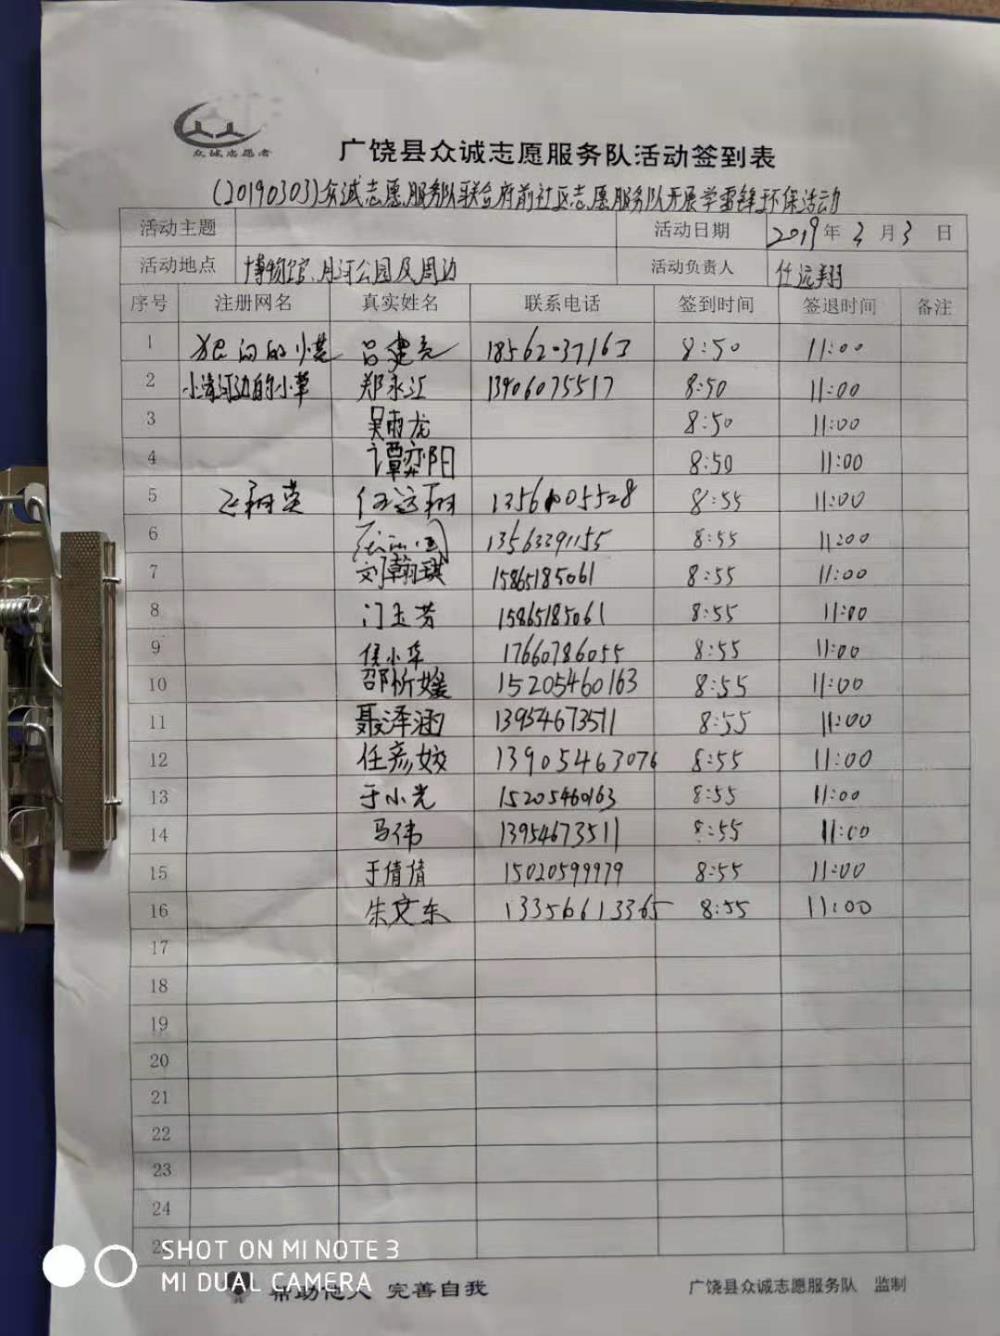 众诚志愿者
广饶县众诚志愿服务队活动签到表
(20190303)众诚志愿服务队联合府前社区志愿服务队开展学雷锋环保活动
活动主题 活动日期 2019年3月3日
活动地点 博物馆、月河公园及周边 活动负责人 任远翔
序号 注册网名 真实姓名 联系电话 签到时间 签退时间 备注
1 吕建亮 8:50 11:00
2 小清河边的小草 郑永江 13906075517 8:50 11:00
3 吴雨龙 8:50 11:00
4 谭弈阳 8:50 11:00
5 任远翔 8:55 11:00
6 13563291155 8:55 11:00
7 刘翰琪 15865185061 8:55 11:00
8 门玉芳 15865185061 8:55 11:00
9 侯小华 17660786055 8:55 11:00
10 邵忻媛 15205460163 8:55 11:00
11 聂泽涵 13954673511 8:55 11:00
12 任彦姣 13905463076 8:55 11:00
13 于小光 15205460163 8:55 11:00
14 马伟 13954673511 8:55 11:00
15 于倩倩 15020599979 8:55 11:00
16 朱文东 13356613365 8:55 11:00
17
18
19
20
21
22
23
24
SHOT ON MI NOTE 3
MI DUAL CAMERA
帮助他人 完善自我 广饶县众诚志愿服务队 监制